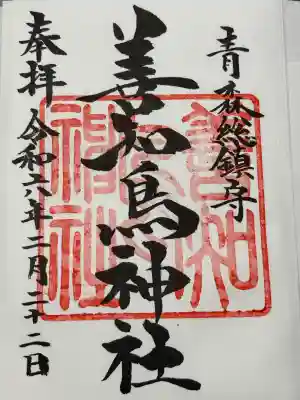 青森総鎮守
善知鳥神社
奉拝 令和六年二月二十二日